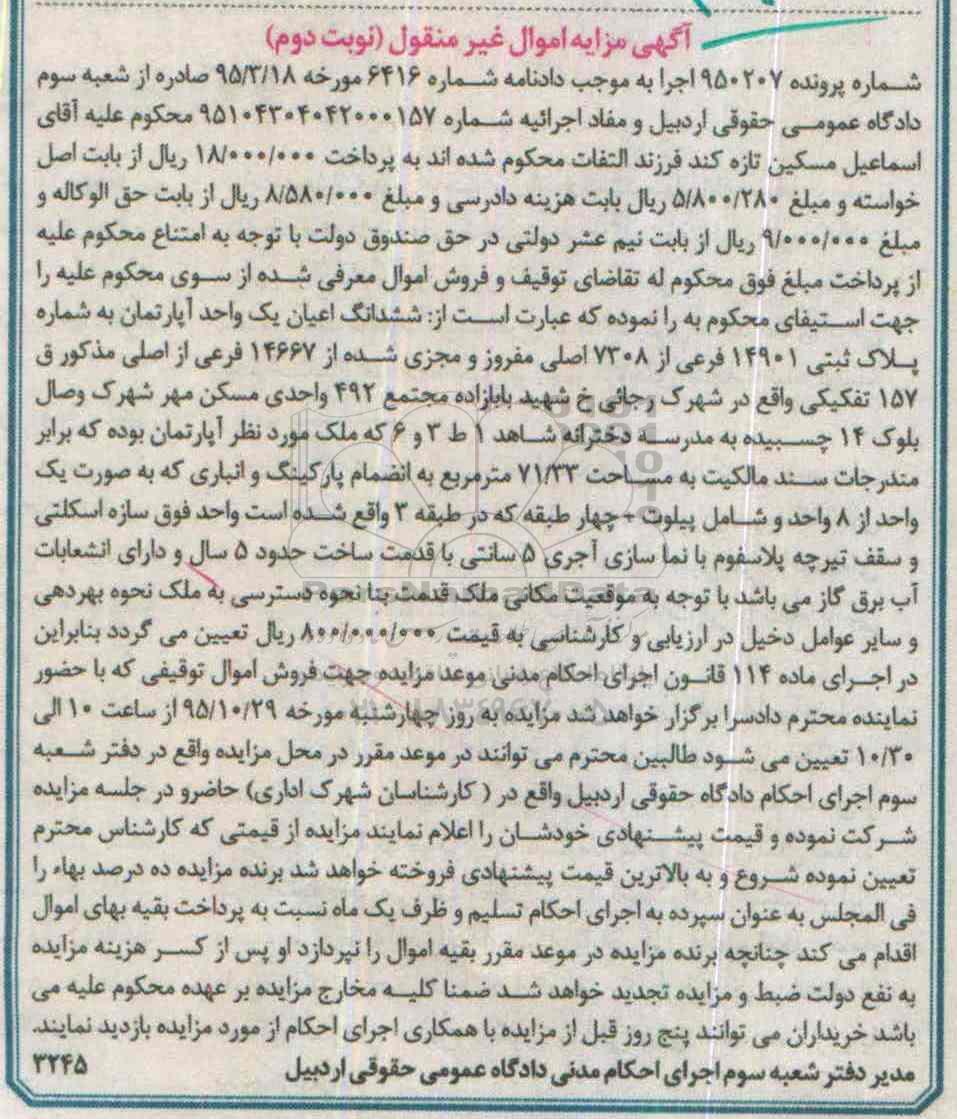 آگهی مزایه اموال غیر منقول (نوبت دوم)
شماره پرونده ۹۵۰۲۰۷ اجرا به موجب دادنامه شماره ۶۴۱۶ مورخه ۹۵/۳/۱۸ صادره از شعبه سوم
دادگاه عمومی حقوقی اردبیل و مفاد اجرائیه شماره ۹۵۱۰۴۳۰۴۰۴۲۰۰۰۱۵۷ محکوم علیه آقای
اسماعیل مسکین تازه کند فرزند التفات محکوم شده اند به پرداخت ۱۸/۰۰۰/۰۰۰ ریال از بابت اصل
خواسته و مبلغ ۵/۸۰۰/۲۸۰ ریال بابت هزینه دادرسی و مبلغ ۸/۵۸۰/۰۰۰ ریال از بابت حق الوکاله و
مبلغ ۹/۰۰۰/۰۰۰ ریال از بابت نیم عشر دولتی در حق صندوق دولت با توجه به امتناع محکوم علیه
از پرداخت مبلغ فوق محکوم له تقاضای توقیف و فروش اموال معرفی شده از سوی محکوم علیه را
جهت استیفای محکوم به را نموده که عبارت است از: ششدانگ اعیان یک واحد آپارتمان به شماره
پلاک ثبتی ۱۴۹۰۱ فرعی از ۷۳۰۸ اصلی مفروز و مجزی شده از ۱۴۶۶۷ فرعی از اصلی مذکور ق
۱۵۷ تفکیکی واقع در شهرک رجائی خ شهید بابازاده مجتمع ۴۹۲ واحدی مسکن مهر شهرک وصال
بلوک ۱۴ چسبیده به مدرسه دخترانه شاهد ۱ ط ۳ و ۶ که ملک مورد نظر آپارتمان بوده که برابر
مندرجات سند مالکیت به مساحت ۷۱/۳۳ مترمربع به انضمام پارکینگ و انباری که به صورت یک
واحد از ۸ واحد و شامل پیلوت + چهار طبقه که در طبقه ۳ واقع شده است واحد فوق سازه اسکلتی
و سقف تیرچه پلاسفوم با نما سازی آجری ۵ سانتی با قدمت ساخت حدود ۵ سال و دارای انشعابات
آب برق گاز می باشد با توجه به موقعیت مکانی ملک قدمت بنا نحوه دسترسی به ملک نحوه بهردهی
و سایر عوامل دخیل در ارزیابی و کارشناسی به قیمت ۸۰۰/۰۰۰/۰۰۰ ریال تعیین می گردد بنابراین
در اجرای ماده ۱۱۴ قانون اجرای احکام مدنی موعد مزایده جهت فروش اموال توقیفی که با حضور
نماینده محترم دادسرا برگزار خواهد شد مزایده به روز چهارشنبه مورخه ۹۵/۱۰/۲۹ از ساعت ۱۰ الی
۱۰/۳۰ تعیین می شود طالبین محترم می توانند در موعد مقرر در محل مزایده واقع در دفتر شعبه
سوم اجرای احکام دادگاه حقوقی اردبیل واقع در ( کارشناسان شهرک اداری) حاضرو در جلسه مزایده
شرکت نموده و قیمت پیشنهادی خودشان را اعلام نمایند مزایده از قیمتی که کارشناس محترم
تعیین نموده شروع و به بالاترین قیمت پیشنهادی فروخته خواهد شد برنده مزایده ده درصد بهاء را
فی المجلس به عنوان سپرده به اجرای احکام تسلیم و ظرف یک ماه نسبت به پرداخت بقیه بهای اموال
اقدام می کند چنانچه برنده مزایده در موعد مقرر بقیه اموال را نپردازد او پس از کسر هزینه مزایده
به نفع دولت ضبط و مزایده تجدید خواهد شد ضمنا کلیه مخارج مزایده بر عهده محکوم علیه می
باشد خریداران می توانند پنج روز قبل از مزایده با همکاری اجرای احکام از مورد مزایده بازدید نمایند.
مدیر دفتر شعبه سوم اجرای احکام مدنی دادگاه عمومی حقوقی اردبیل ۳۲۴۵